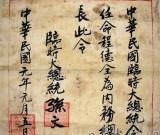 中華民國臨時大總統令
任命程德全為內務總
長此令
臨時大總統孫文
中華民國元年元月五日